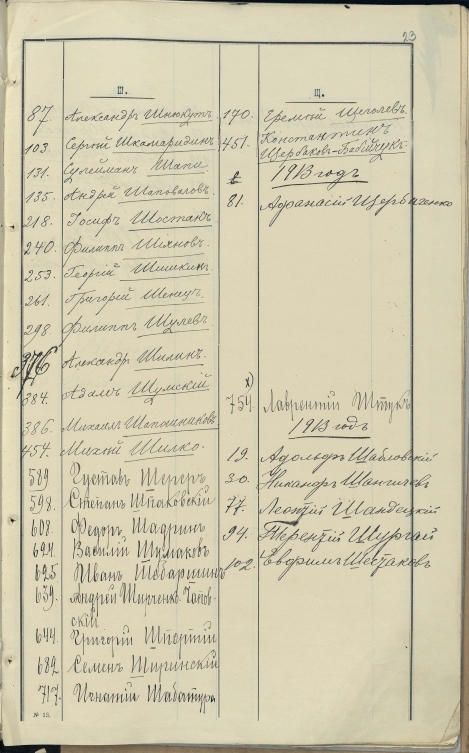 23
Ш.
87. Александръ Шнюкутъ
103. Сергѣй Шкамаридинъ
131. Сулейманъ Шапи
135. Андрей Шаповаловъ.
218. Іосифъ Шостанъ
240. Филиппъ Шіяновъ.
253. Георгій Шишкинъ
261. Григорій Шенецъ.
298. Филиппъ Шулевъ
376 Александръ Шилинъ.
384. Адамъ Шумскій
386. Михаилъ Шапошниковъ
454. Михей Шилко.
589 Густавъ Шереръ
598. Степанъ Шпаковскій
608. Федоръ Шадринъ
624 Василій Шумаковъ
625 Иванъ Шебаршинъ
639. Андрей Шинченко-Чапов-
скій
644. Григорій
682 Семенъ Ширинскій
717. Игнатій Шабатура
№ 13.
Щ.
170. Еремѣй Щеголевъ.
451. Константинъ
Щербаковъ-Бабійчукъ.
1913 годъ
81. Афанасій Щербаченко
х)
754 Лаврентій Штукъ
1913 годъ
19. Адольфъ Шабловскій
30. Никандръ Шангичевъ
77. Леонтій Шандецкій
94. Терентій Шургай
102. Евфимъ Шестаковъ